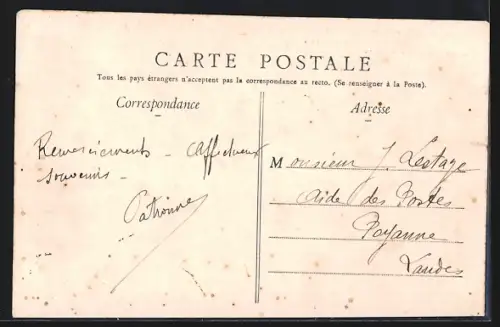 CARTE POSTALE
Tous les pays étrangers n'acceptent pas la correspondance au recto. (Se renseigner à la Poste).
Correspondance
Remerciements - affectueux
souvenirs -
Adresse
Monsieur J. Lestage
Aide des Postes
Poyanne
Landes